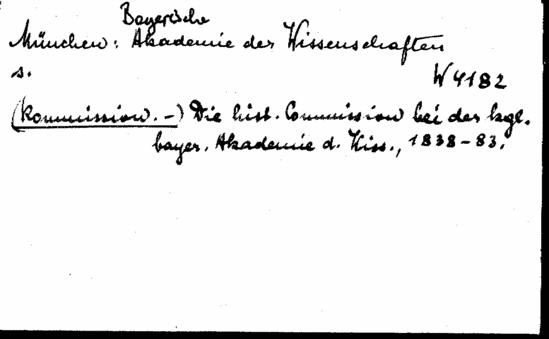 Bayerische
München: Akademie der Wissenschaften
s.
W 4182
(Kommission. -) Die hist. Commission bei der kgl.
bayer. Akademie d. Wiss., 1838-83.